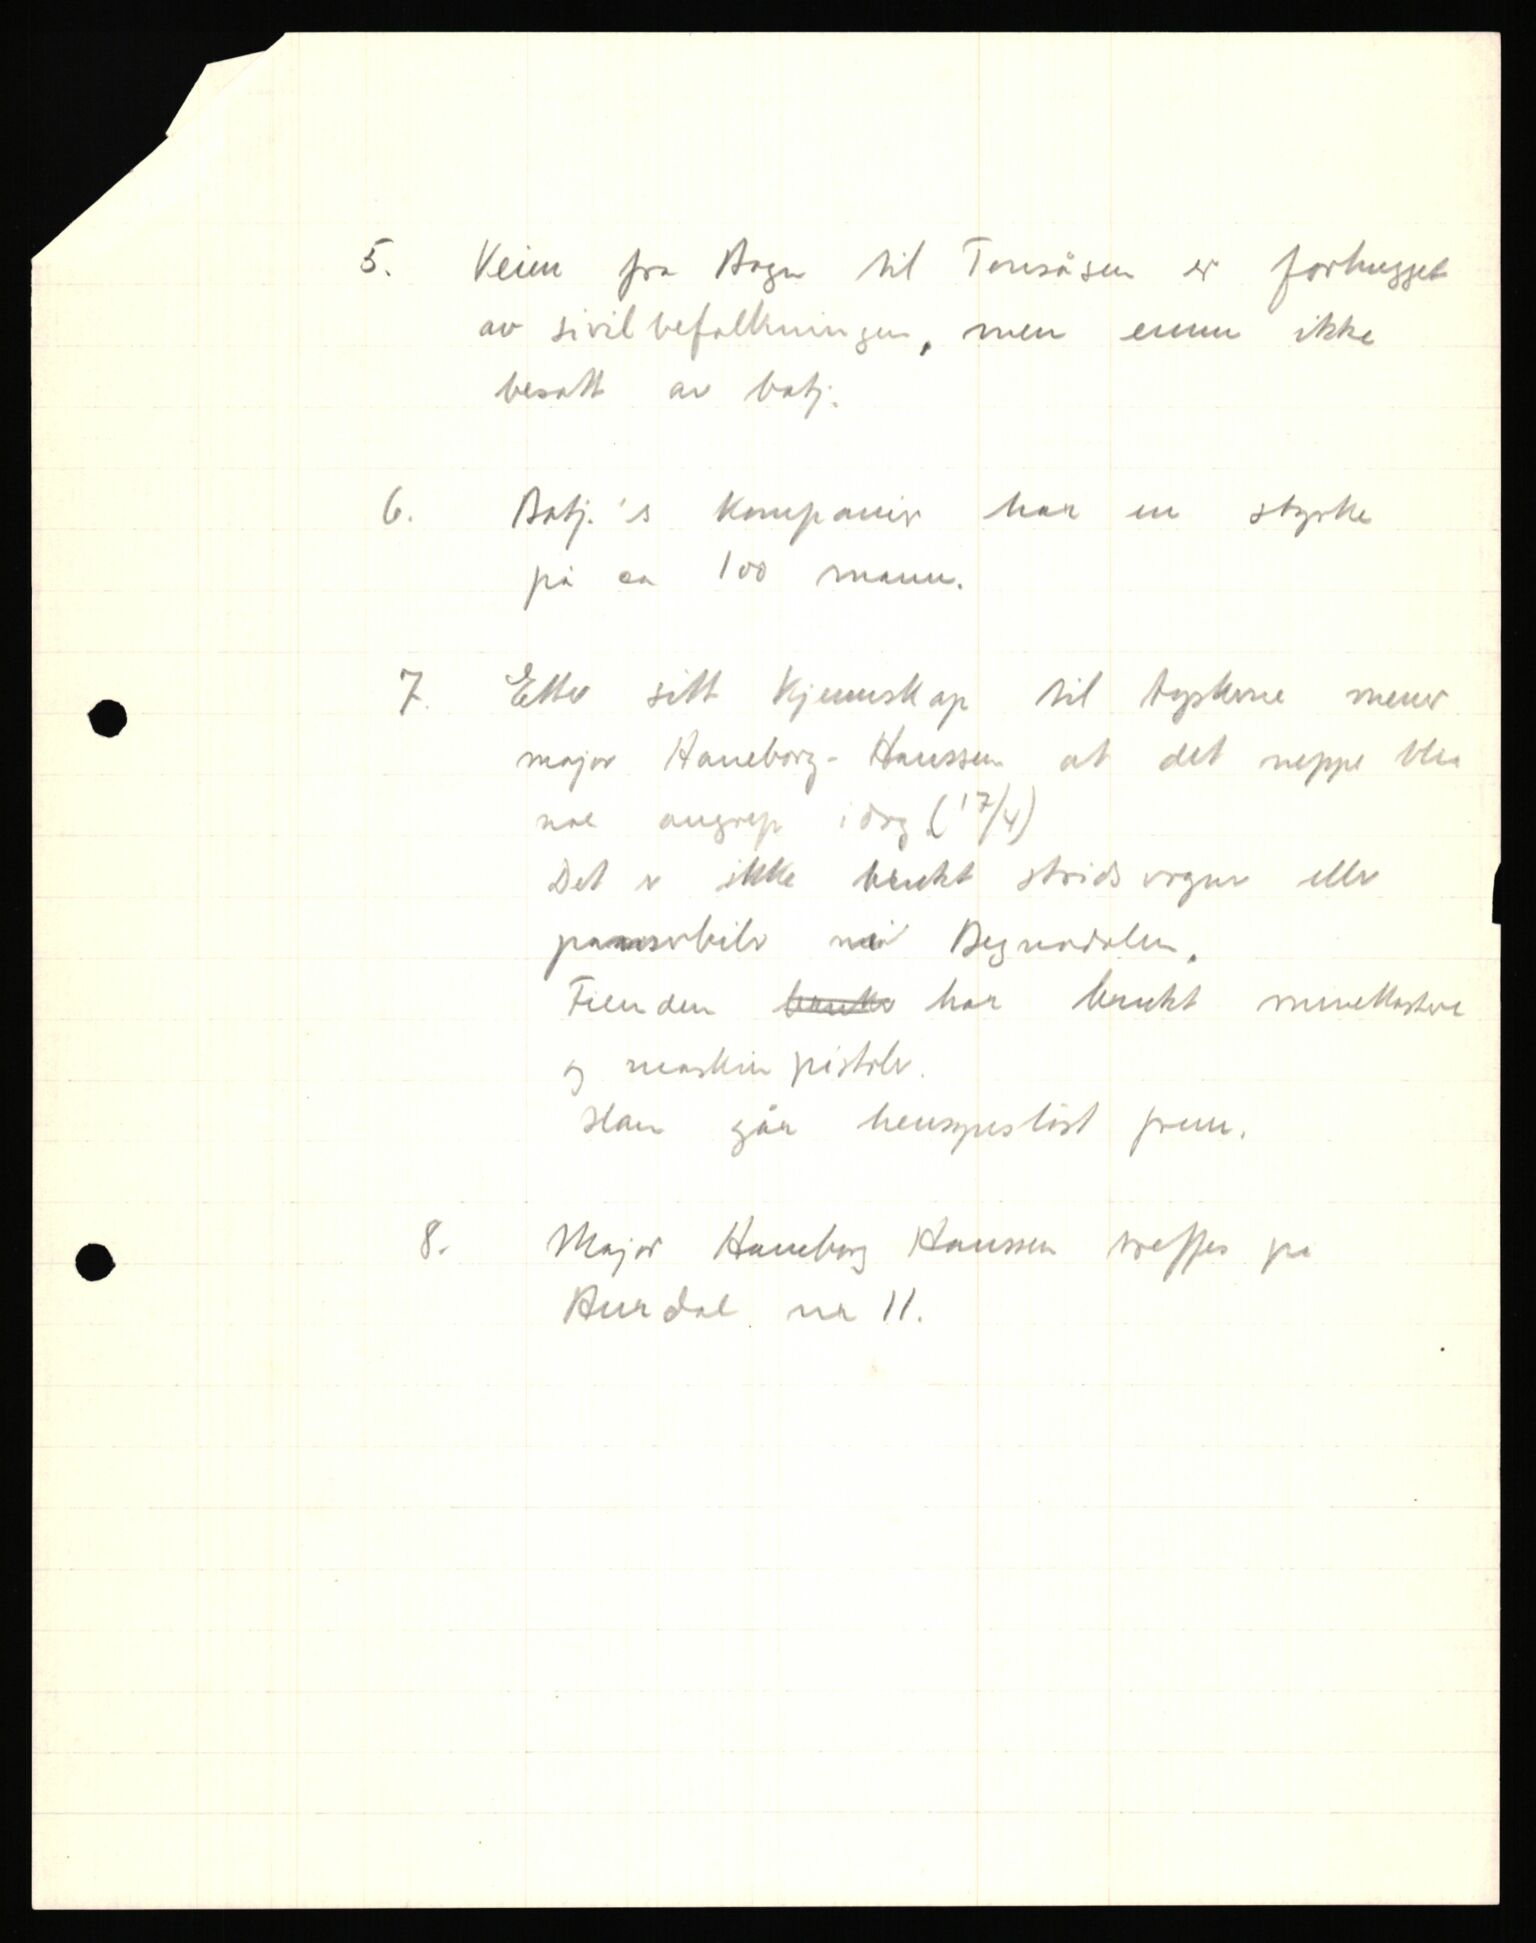 5. Veien fra Bagn til Tonsåsen er forhugget
av sivilbefolkningen, men ennu ikke
besatt av batj.
6. Batj.'s kompanier har en styrke
på ca 100 mann.
7. Etter sitt kjennskap til tyskerne mener
major Haneborg-Hanssen at det neppe blir
noe angrep idag (17/4)
Det er ikke brukt stridsvogner eller
panserbiler i Begnadalen.
Fienden bruker har brukt minekastere
og maskinpistoler.
Han går hensynsløst frem.
8. Major Haneborg Hanssen treffes på
Aurdal nr 11.